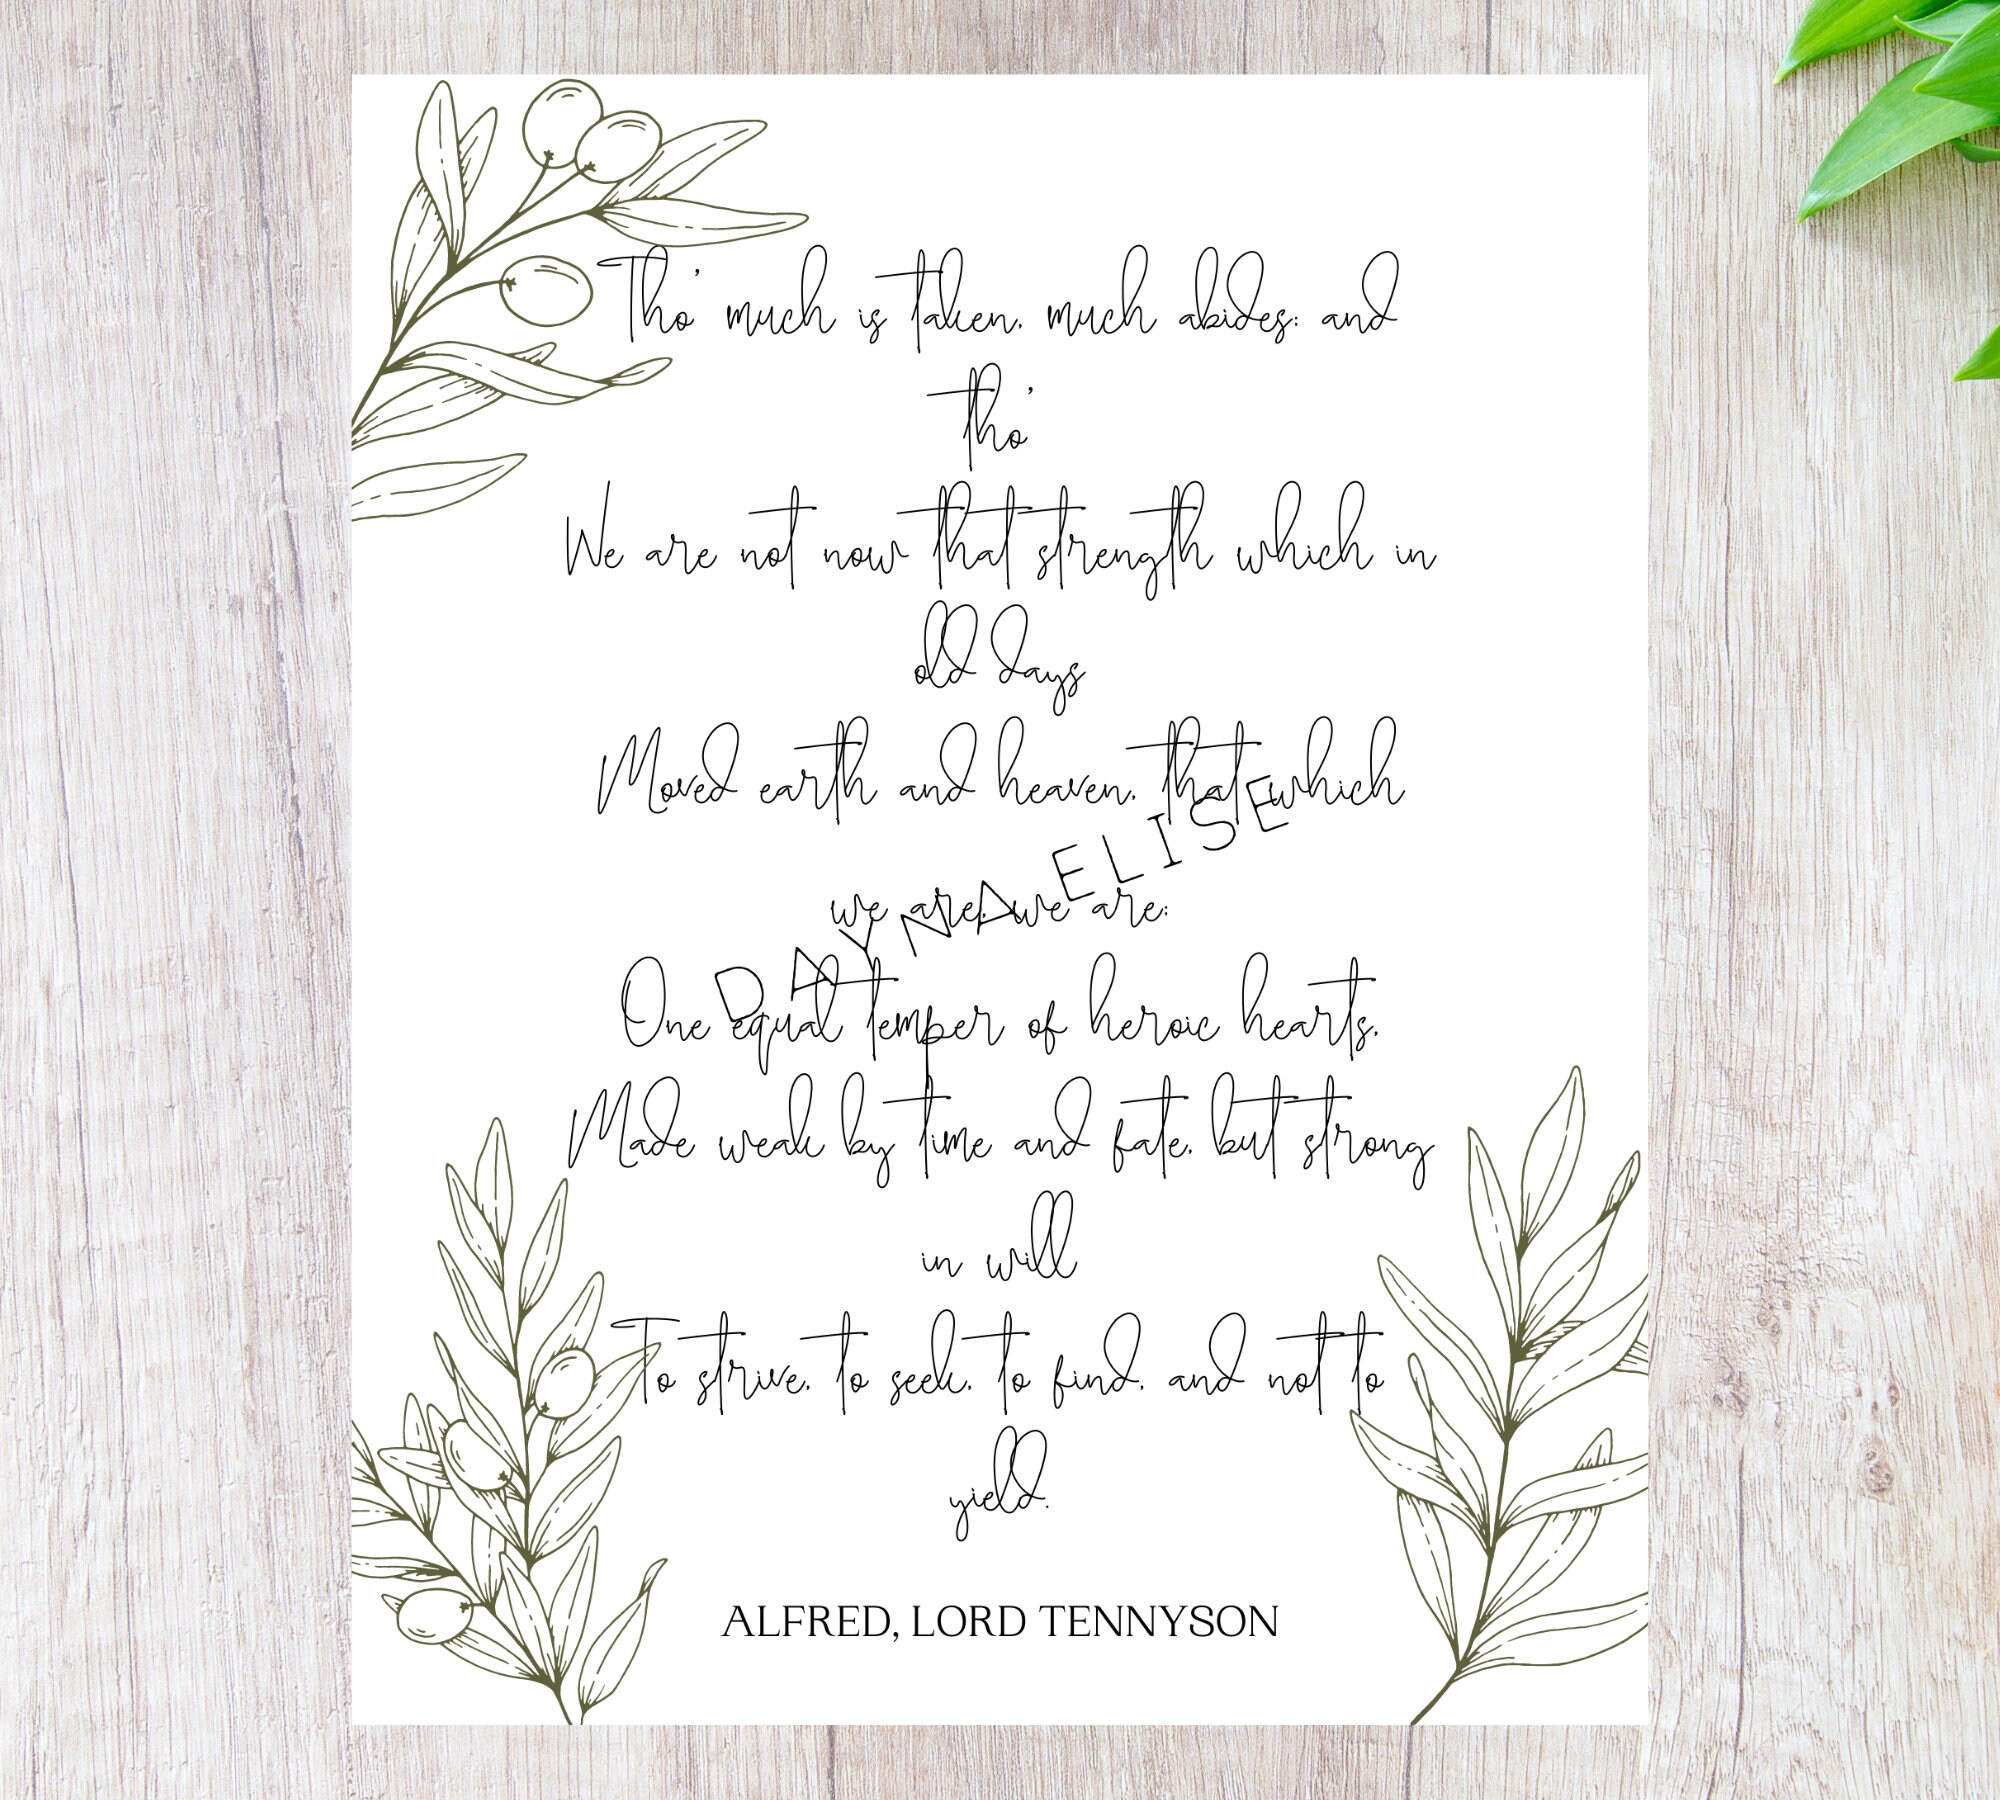 Tho' much is taken, much abides; and
tho'
We are not now that strength which in
old days
Moved earth and heaven, that which
we are, we are;
DAYNA ELISE
One equal temper of heroic hearts,
Made weak by time and fate, but strong
in will
To strive, to seek, to find, and not to
yield.
ALFRED, LORD TENNYSON